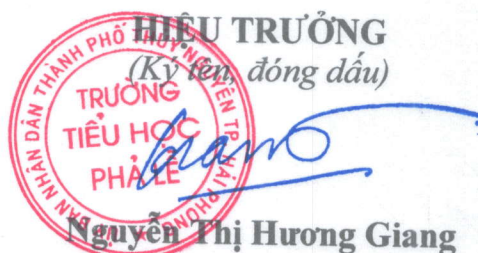 HIỆU TRƯỞNG
(Ký tên, đóng dấu)
ỦY BAN NHÂN DÂN THÀNH PHỐ THỦY NGUYÊN TP. HẢI PHÒNG
TRƯỜNG
TIỂU HỌC
PHẢ LỄ
Nguyễn Thị Hương Giang